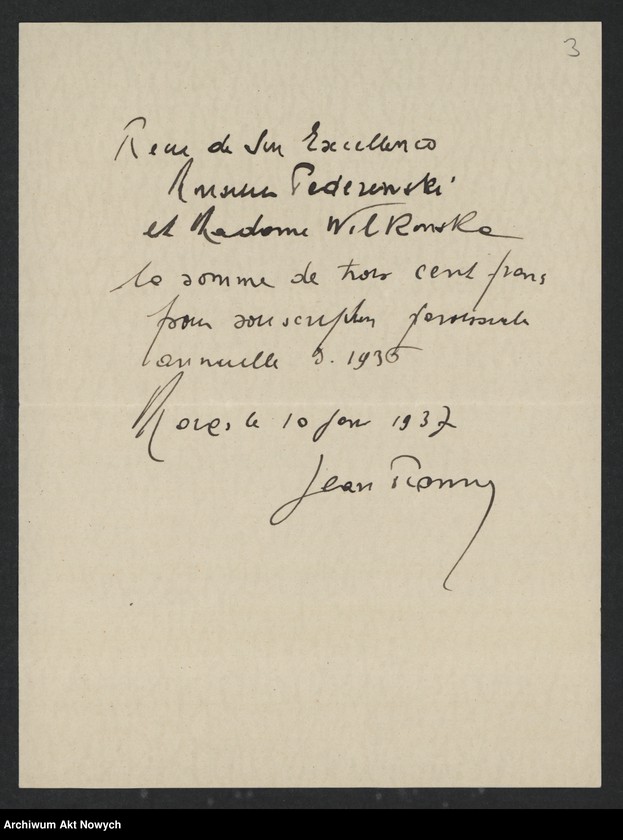 3
Recu de Son Excellence
Monsieur Paderewski
et Madame Wilkonska
la somme de trois cent francs
pour souscription paroissiale
annuelle d. 1936
Morges le 10 Janv 1937
Jean
Archiwum Akt Nowych